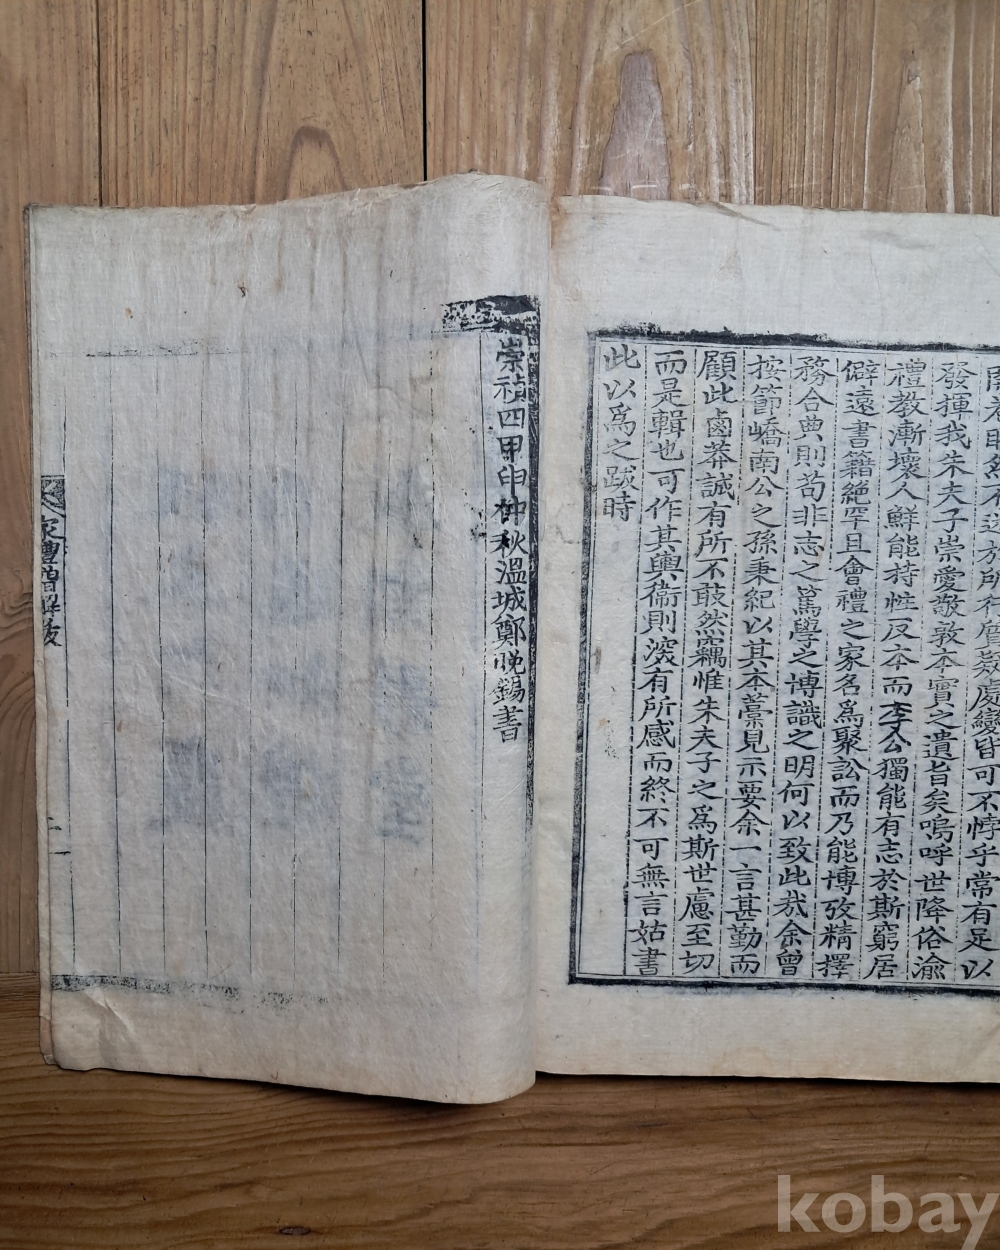 發揮我朱夫子崇愛敬敦本實之遺旨矣嗚呼世降俗渝
禮教漸壞人鮮能持性反本而李公獨能有志於斯窮居
僻遠書籍絶罕且會禮之家名爲聚訟而乃能博攷精擇
務合典則苟非志之篤學之博識之明何以致此哉余曾
按節嶠南公之孫秉紀以其本藁見示要余一言甚勤而
顧此鹵莽誠有所不敢然竊惟朱夫子之爲斯世慮至切
而是輯也可作其輿衞則深有所感而終不可無言姑書
此以爲之跋時
崇禎四甲申仲秋溫城鄭晩錫書
家禮增解跋
二
kobay